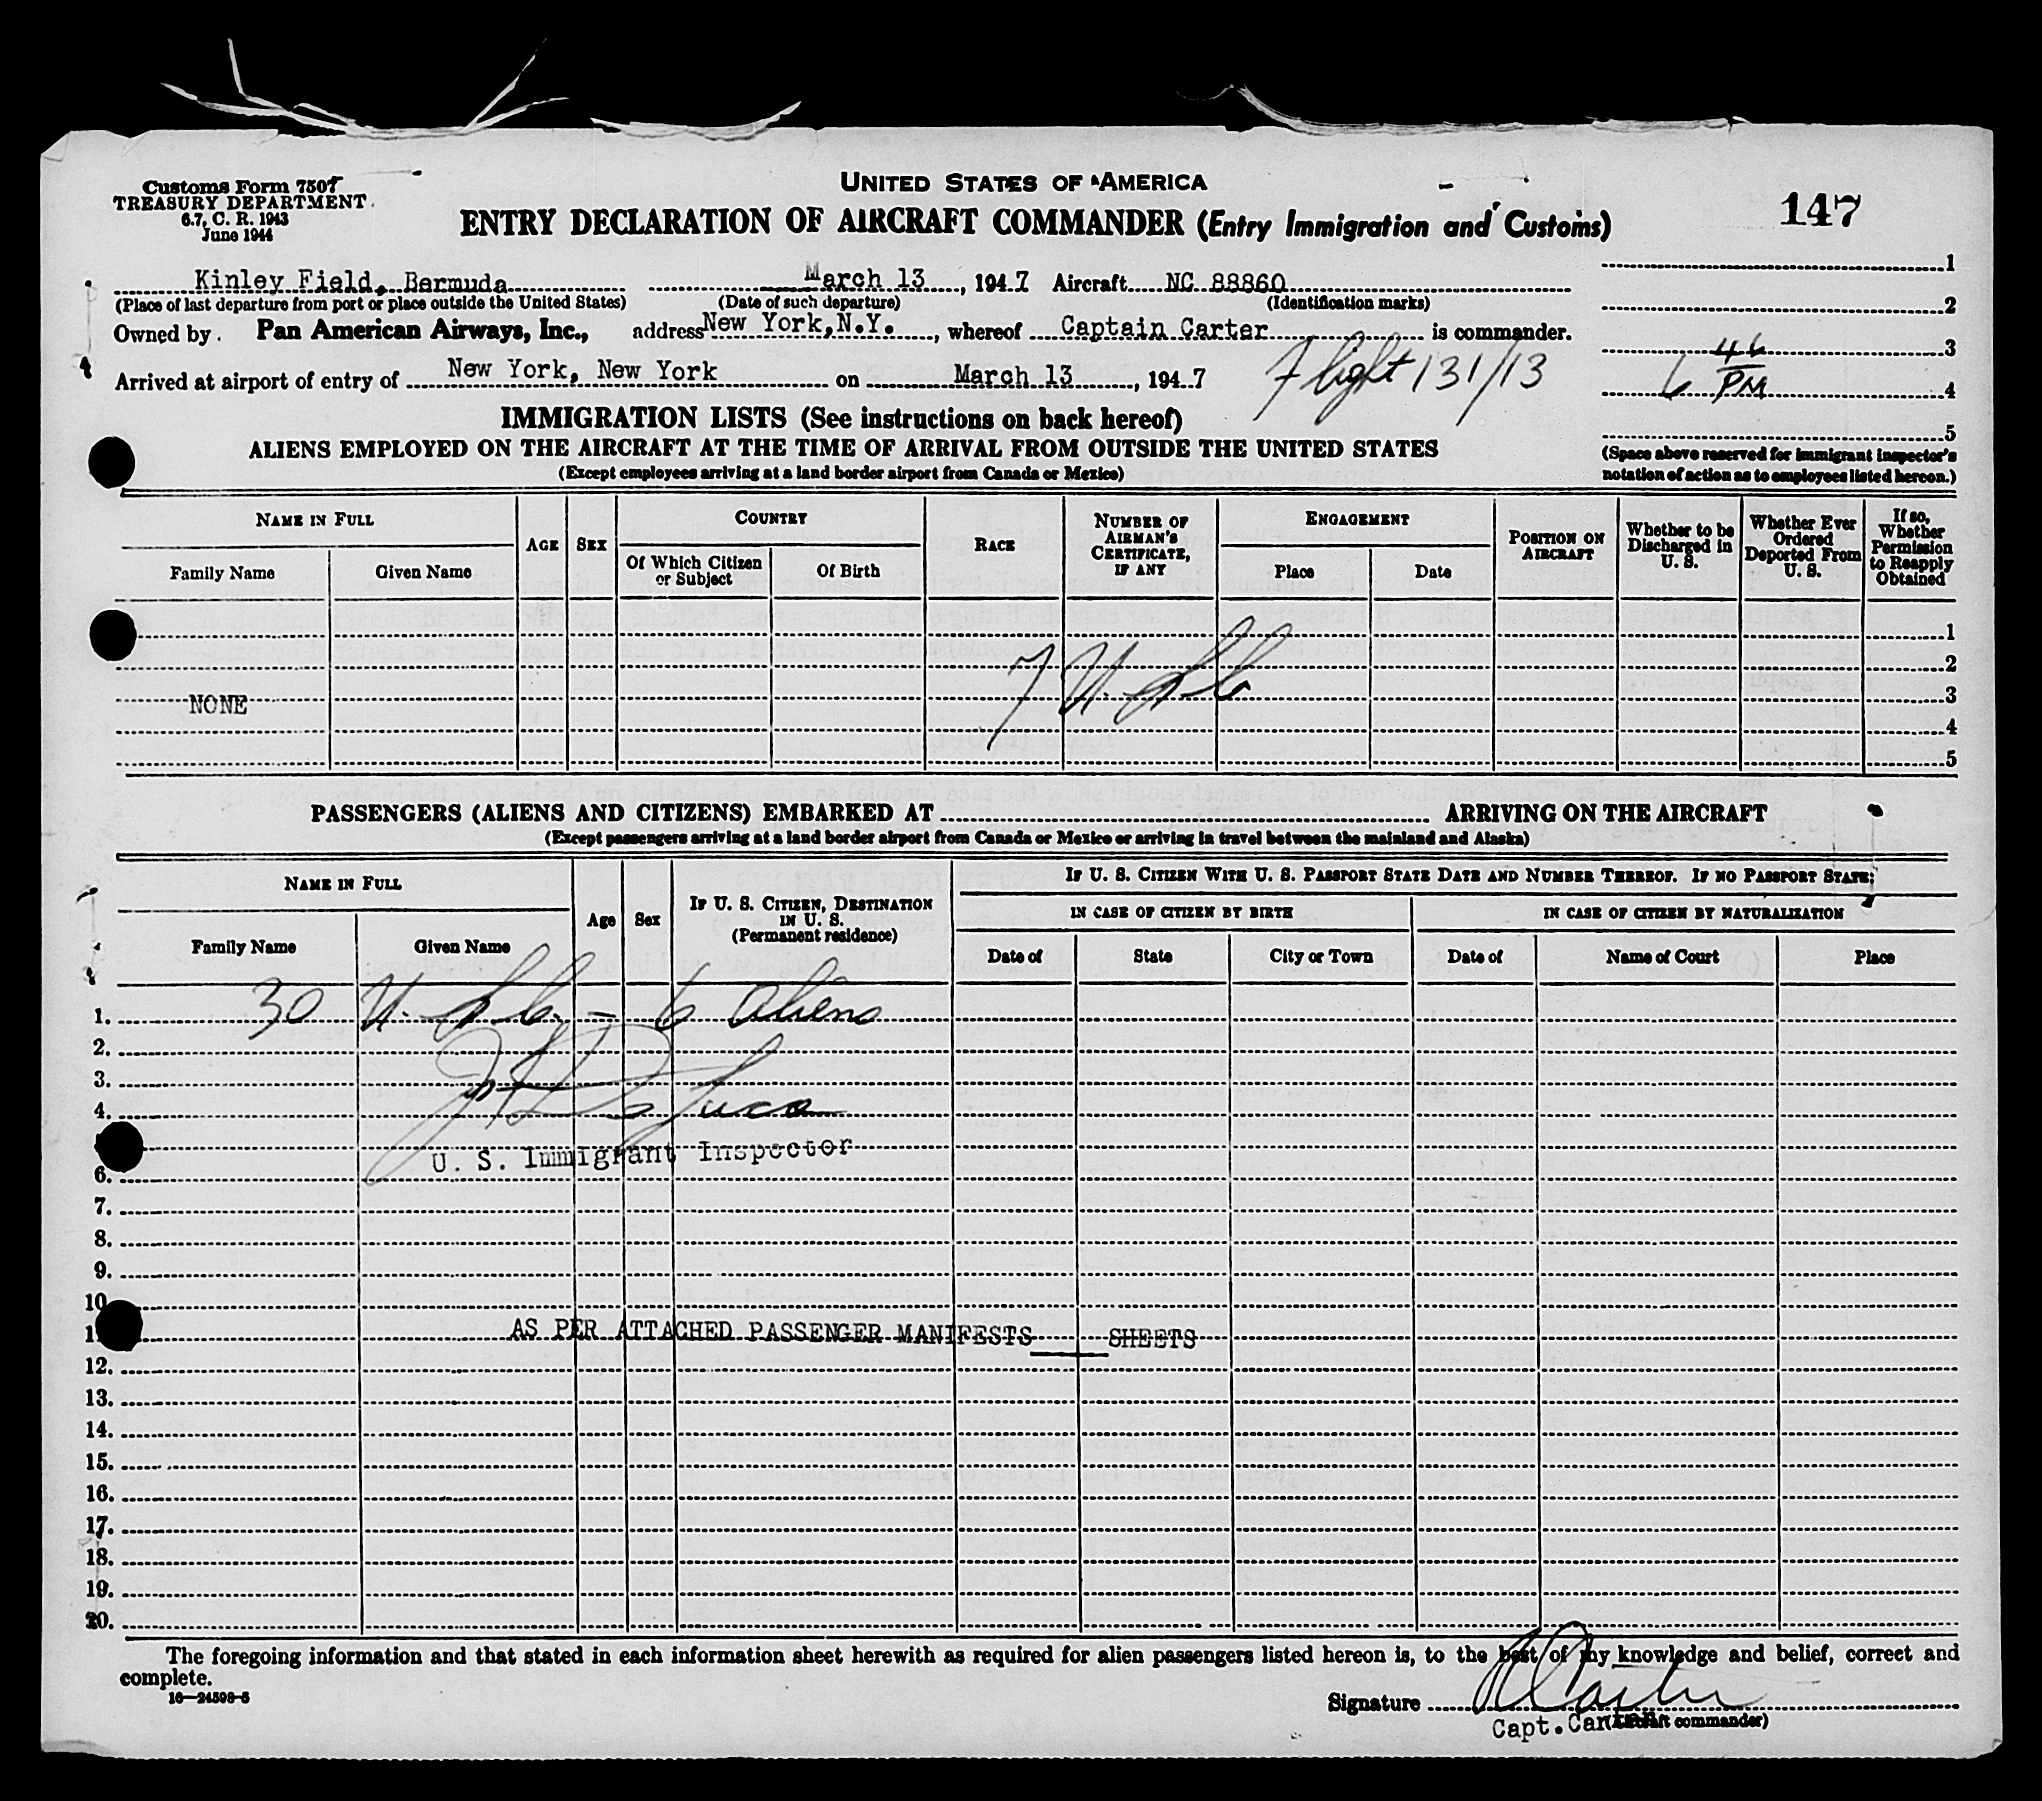 Customs Form 7507
TREASURY DEPARTMENT
6.7, C. R. 1943
June 1944
UNITED STATES OF AMERICA
ENTRY DECLARATION OF AIRCRAFT COMMANDER (Entry Immigration and Customs)
147
Kinley Field, Bermuda March 13, 1947 Aircraft NC 88860
(Place of last departure from port or place outside the United States) (Date of such departure) (Identification marks)
Owned by Pan American Airways, Inc., address New York, N.Y., whereof Captain Carter is commander.
Arrived at airport of entry of New York, New York on March 13, 1947
Flight 131/13
1
2
3
4
5
6 46 PM
(Space above reserved for immigrant inspector's
notation of action as to employees listed hereon.)
IMMIGRATION LISTS (See instructions on back hereof)
ALIENS EMPLOYED ON THE AIRCRAFT AT THE TIME OF ARRIVAL FROM OUTSIDE THE UNITED STATES
(Except employees arriving at a land border airport from Canada or Mexico)
NAME IN FULL
Family Name Given Name
AGE
SEX
COUNTRY
Of Which Citizen or Subject
Of Birth
RACE
NUMBER OF AIRMAN'S CERTIFICATE, IF ANY
ENGAGEMENT
Place Date
POSITION ON AIRCRAFT
Whether to be Discharged in U. S.
Whether Ever Ordered Deported From U. S.
If so, Whether Permission to Reapply Obtained
1
2
NONE 3
4
5
7 U.S.C.
PASSENGERS (ALIENS AND CITIZENS) EMBARKED AT ARRIVING ON THE AIRCRAFT
(Except passengers arriving at a land border airport from Canada or Mexico or arriving in travel between the mainland and Alaska)
NAME IN FULL
Family Name Given Name
Age
Sex
IF U. S. CITIZEN, DESTINATION IN U. S.
(Permanent residence)
IF U. S. CITIZEN WITH U. S. PASSPORT STATE DATE AND NUMBER THEREOF. IF NO PASSPORT STATE:
IN CASE OF CITIZEN BY BIRTH
IN CASE OF CITIZEN BY NATURALIZATION
Date of State City or Town Date of Name of Court Place
1. 30 U.S.C. - 6 aliens
2.
3.
4.
U. S. Immigrant Inspector
6.
7.
8.
9.
10
1
AS PER ATTACHED PASSENGER MANIFESTS SHEETS
12.
13.
14.
15.
16.
17.
18.
19.
20.
The foregoing information and that stated in each information sheet herewith as required for alien passengers listed hereon is, to the best of my knowledge and belief, correct and
complete.
16—24598-5
Signature R Carter
Capt. Carter (Aircraft commander)